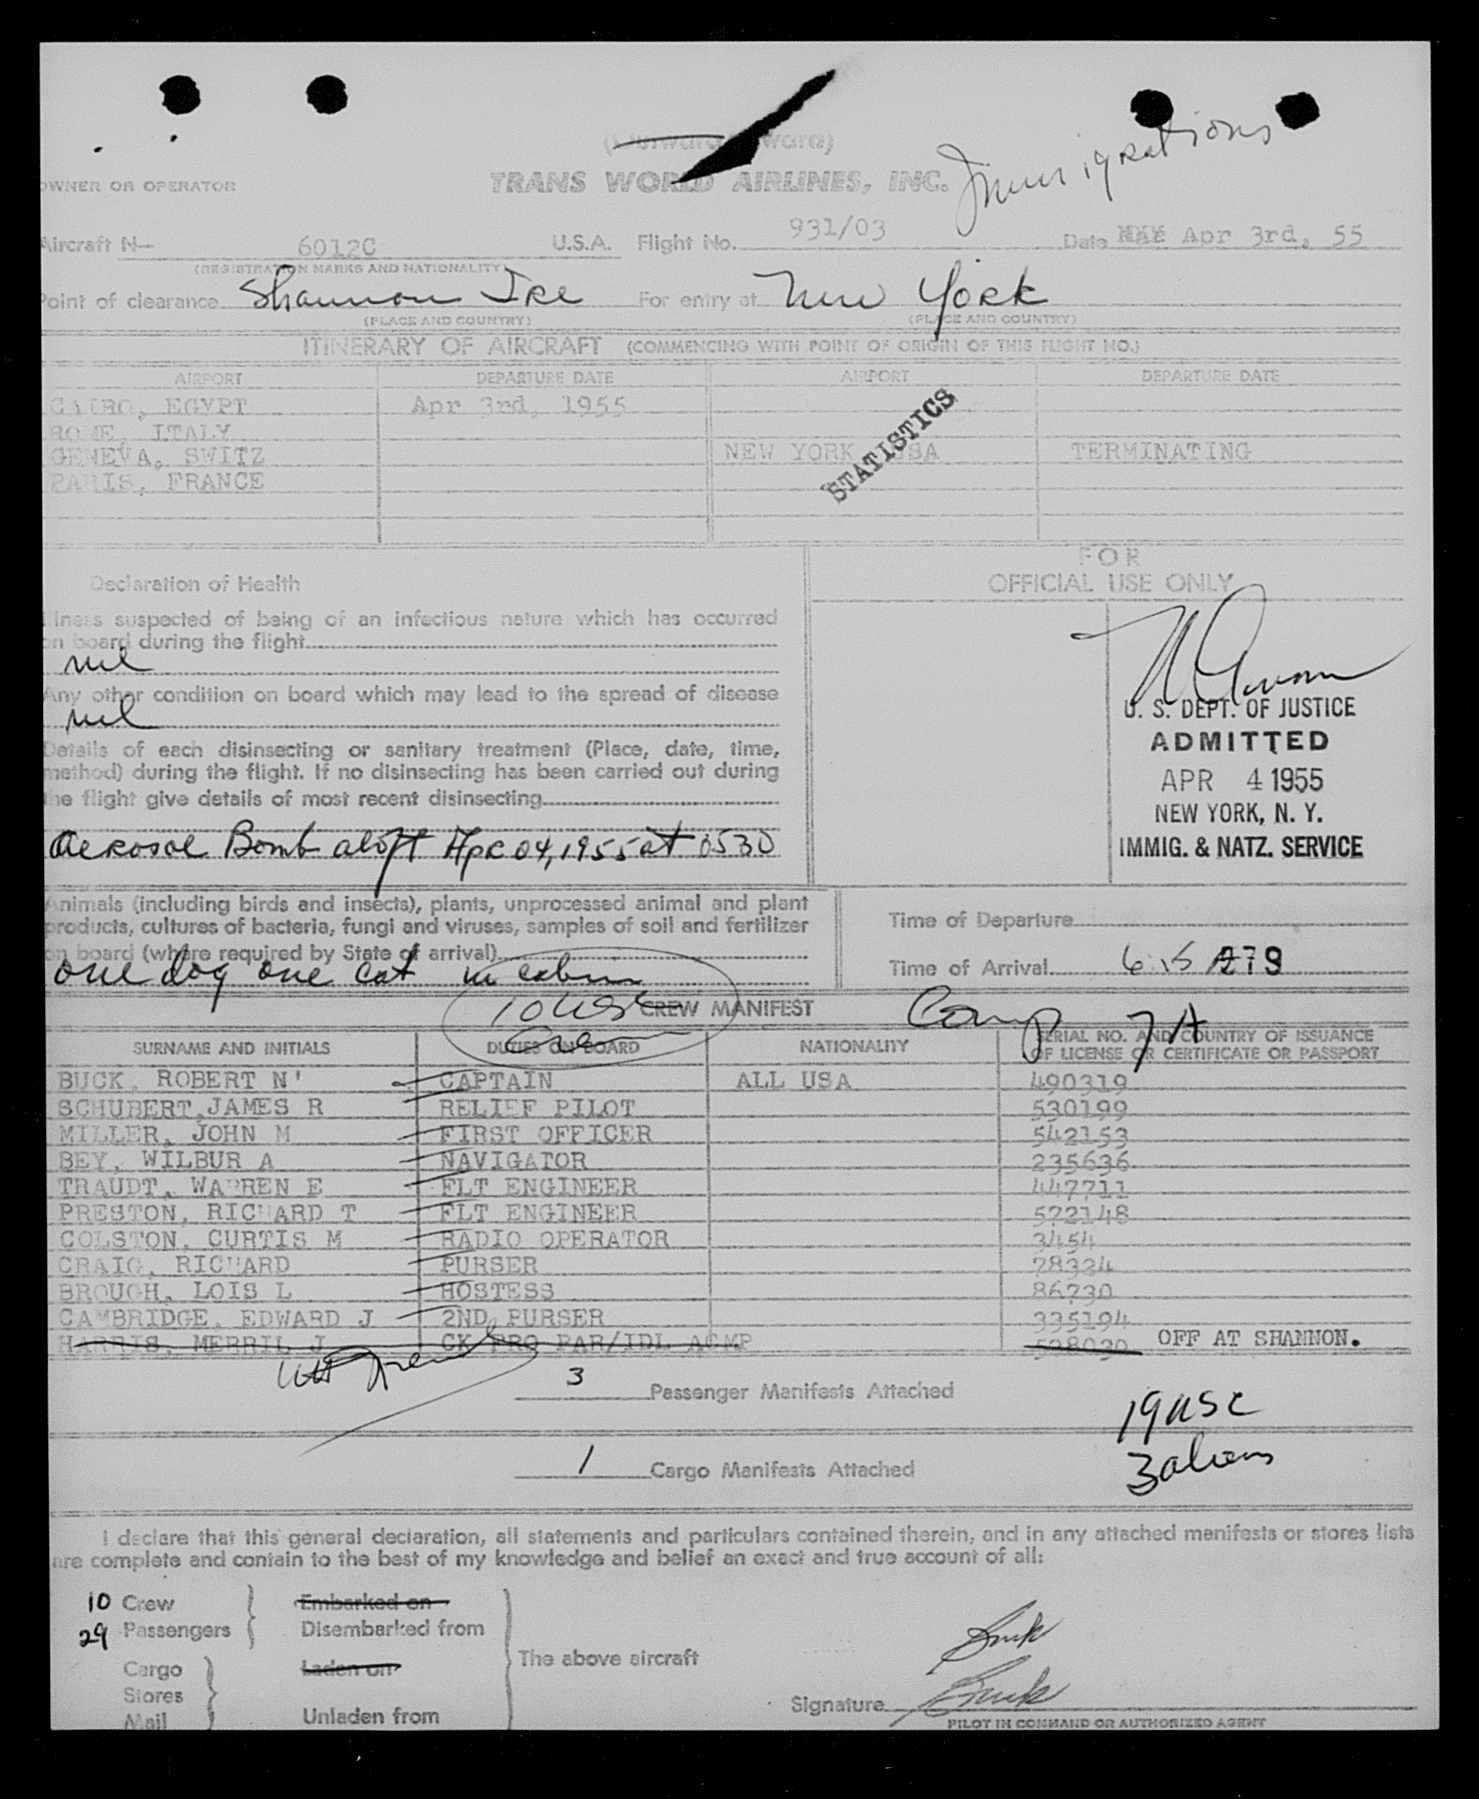 (Outward Inward)
Immigrations
OWNER OR OPERATOR TRANS WORLD AIRLINES, INC.
Aircraft N- 6012C U.S.A. Flight No. 931/03 Date MAY Apr 3rd, 55
(REGISTRATION MARKS AND NATIONALITY)
Point of clearance Shannon Ire For entry at New York
(PLACE AND COUNTRY) (PLACE AND COUNTRY)
ITINERARY OF AIRCRAFT (COMMENCING WITH POINT OF ORIGIN OF THIS FLIGHT NO.)
AIRPORT DEPARTURE DATE AIRPORT DEPARTURE DATE
CAIRO, EGYPT Apr 3rd, 1955
ROME, ITALY
GENEVA, SWITZ NEW YORK, USA TERMINATING
PARIS, FRANCE
STATISTICS
FOR
OFFICIAL USE ONLY
Declaration of Health
Illness suspected of being of an infectious nature which has occurred
on board during the flight
nil
Any other condition on board which may lead to the spread of disease
nil
Details of each disinsecting or sanitary treatment (Place, date, time,
method) during the flight. If no disinsecting has been carried out during
the flight give details of most recent disinsecting
Aerosol Bomb aloft Apr 04, 1955 at 0530
U. S. DEPT. OF JUSTICE
ADMITTED
APR 4 1955
NEW YORK, N. Y.
IMMIG. & NATZ. SERVICE
Animals (including birds and insects), plants, unprocessed animal and plant
products, cultures of bacteria, fungi and viruses, samples of soil and fertilizer
on board (where required by State of arrival)
one dog one cat in cabin
Time of Departure
Time of Arrival 6:15 A
10 USC CREW MANIFEST
Crew
Comp 7A
SURNAME AND INITIALS DUTIES ON BOARD NATIONALITY SERIAL NO. AND COUNTRY OF ISSUANCE
OF LICENSE OR CERTIFICATE OR PASSPORT
BUCK, ROBERT N' CAPTAIN ALL USA 490319
SCHUBERT, JAMES R RELIEF PILOT 530199
MILLER, JOHN M FIRST OFFICER 542153
BEY, WILBUR A NAVIGATOR 235636
TRAUDT, WARREN E FLT ENGINEER 447711
PRESTON, RICHARD T FLT ENGINEER 522148
COLSTON, CURTIS M RADIO OPERATOR 3454
CRAIG, RICHARD PURSER 78324
BROUGH, LOIS L HOSTESS 86730
CAMBRIDGE, EDWARD J 2ND PURSER 335194
HARRIS, MERRIL J CK PRO PAR/IDL ACMP 528030 OFF AT SHANNON.
3 Passenger Manifests Attached
19 USC
1 Cargo Manifests Attached
3 aliens
I declare that this general declaration, all statements and particulars contained therein, and in any attached manifests or stores lists
are complete and contain to the best of my knowledge and belief an exact and true account of all:
10 Crew Embarked on
29 Passengers Disembarked from
The above aircraft
Cargo Laden on
Stores
Mail Unladen from
Buck
Signature Buck
PILOT IN COMMAND OR AUTHORIZED AGENT